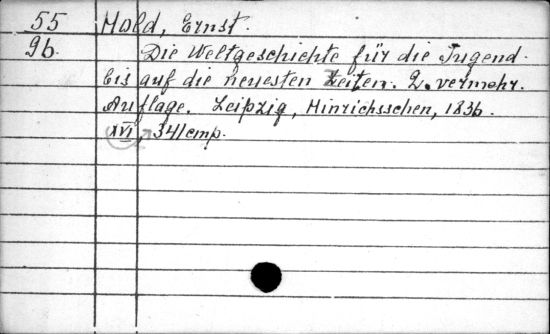 55 Hold, Ernst.
96. Die Weltgeschichte für die Jugend.
bis auf die neuesten Zeiten. 2. vermehr.
Auflage. Leipzig, Hinrichsschen, 1836.
XVI, 341 стр.